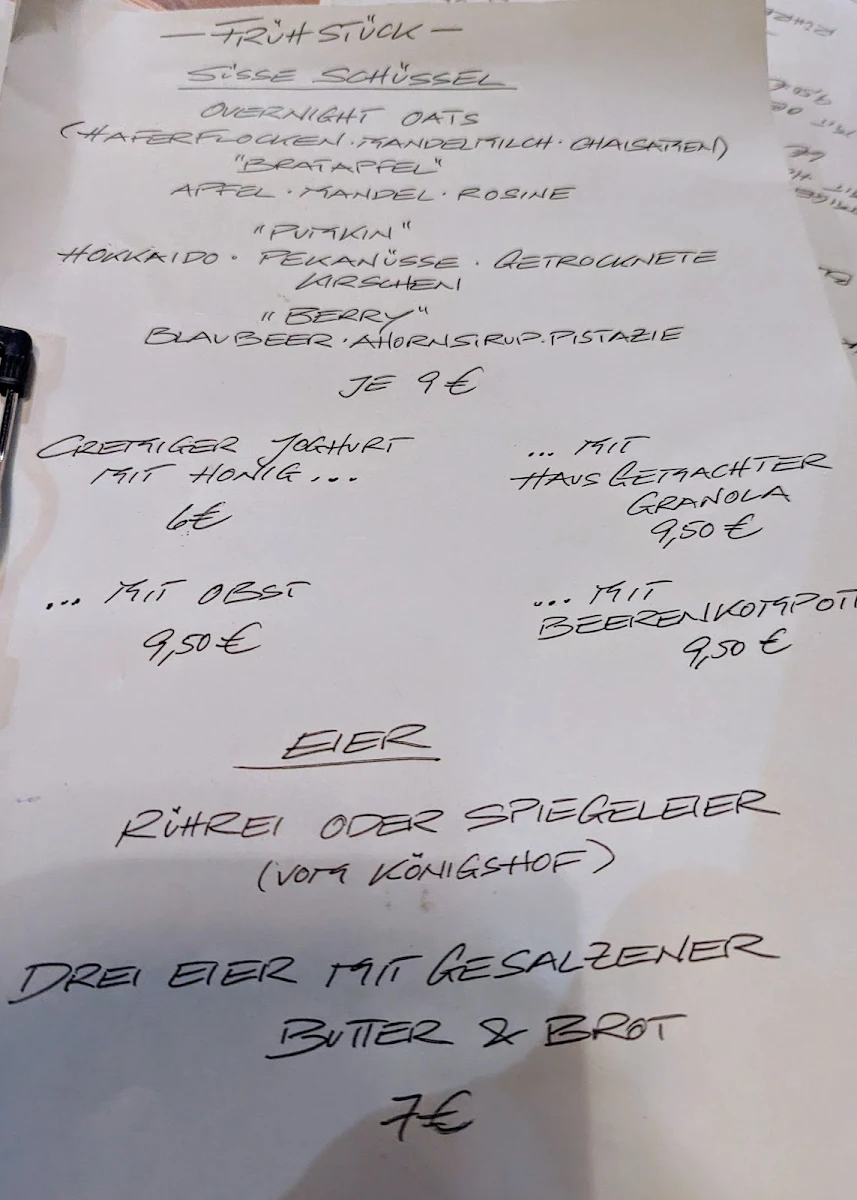 — FRÜHSTÜCK —
SÜSSE SCHÜSSEL
OVERNIGHT OATS
(HAFERFLOCKEN · MANDELMILCH · CHAISAMEN)
"BRATAPFEL"
APFEL · MANDEL · ROSINE
"PUMKIN"
HOKKAIDO · PEKANÜSSE · GETROCKNETE
KIRSCHEN
"BERRY"
BLAUBEER · AHORNSIRUP · PISTAZIE
JE 9 €
CREMIGER JOGHURT
MIT HONIG ...
6€
... MIT
HAUSGEMACHTER
GRANOLA
9,50 €
... MIT OBST
9,50 €
... MIT
BEERENKOMPOTT
9,50 €
EIER
RÜHREI ODER SPIEGELEIER
(VOM KÖNIGSHOF)
DREI EIER MIT GESALZENER
BUTTER & BROT
7€